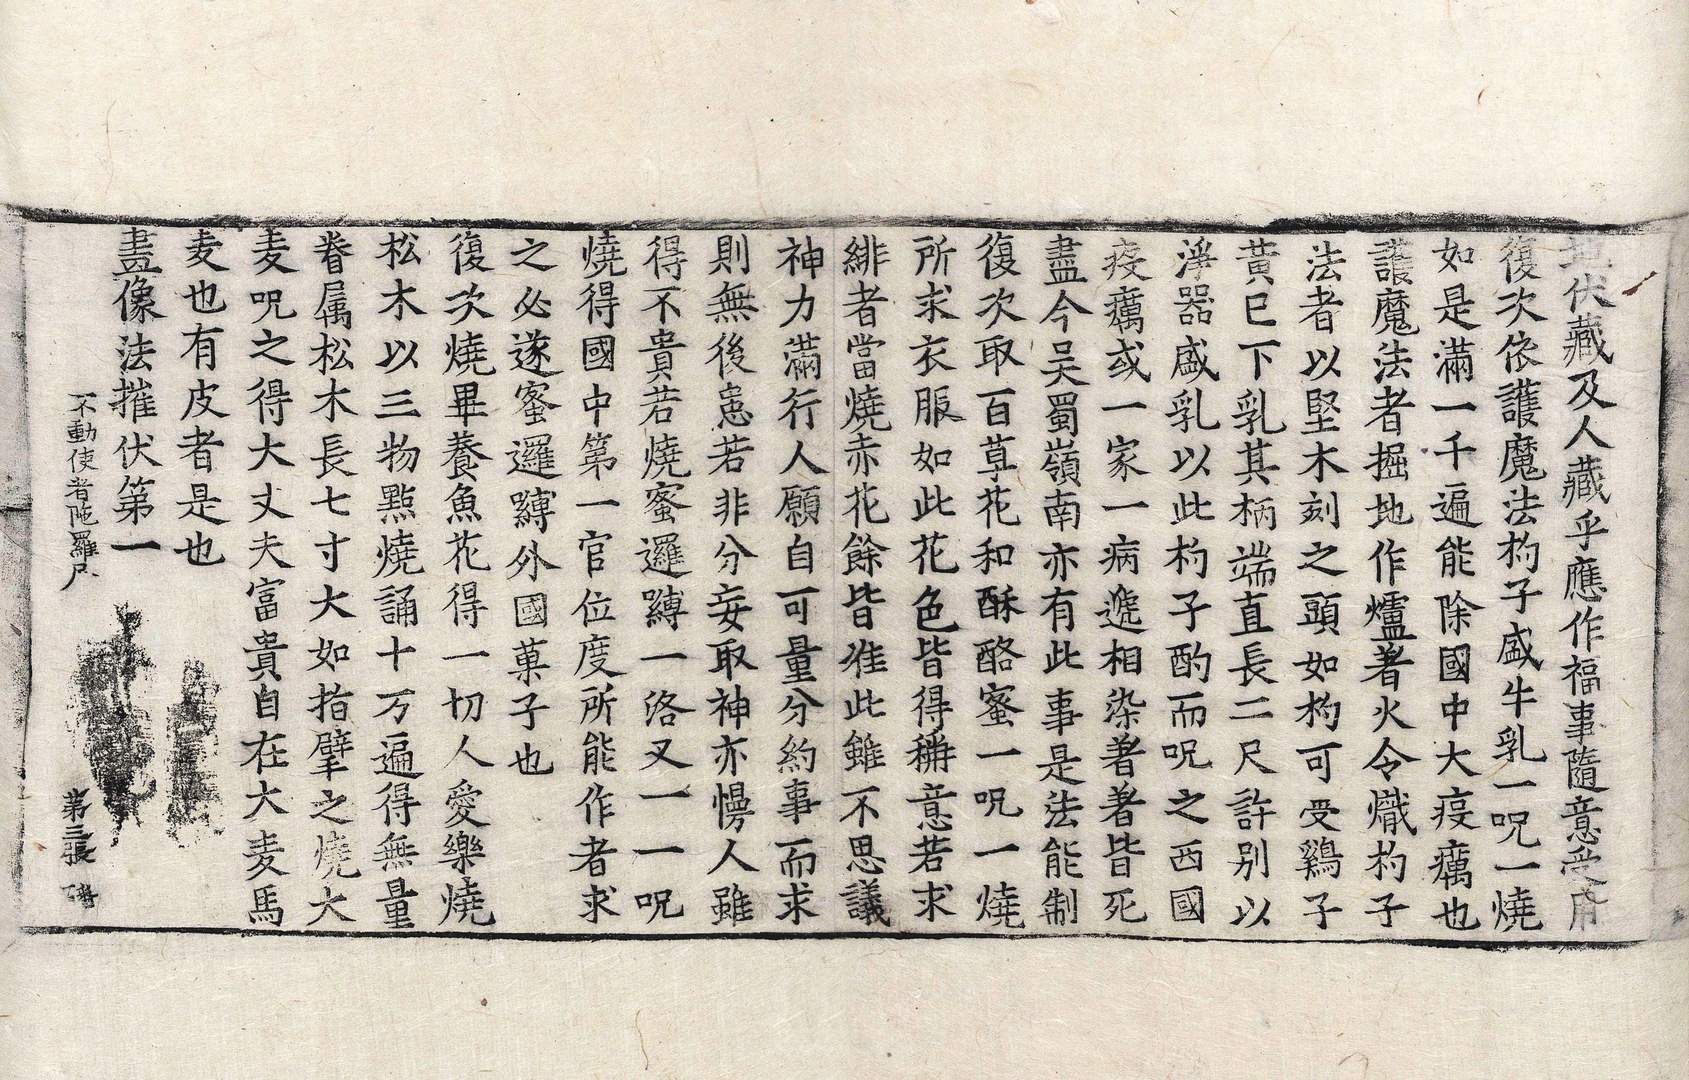 地伏藏及人藏乎應作福事隨意受用
復次依護魔法杓子盛牛乳一呪一燒
如是滿一千遍能除國中大疫癘也
護魔法者掘地作爐著火令熾杓子
法者以堅木刻之頭如杓可受鷄子
黃已下乳其柄端直長二尺許別以
淨器盛乳以此杓子酌而呪之西國
疫癘或一家一病遞相染著著者皆死
盡今吳蜀嶺南亦有此事是法能制
復次取百草花和酥酪蜜一呪一燒
所求衣服如此花色皆得稱意若求
緋者當燒赤花餘皆准此雖不思議
神力滿行人願自可量分約事而求
則無後恚若非分妄取神亦慢人雖
得不貴若燒蜜邏嚩一洛叉一一呪
燒得國中第一官位度所能作者求
之必遂蜜邏嚩外國菓子也
復次燒畢養魚花得一切人愛樂燒
松木以三物點燒誦十万遍得無量
眷属松木長七寸大如指擘之燒大
麦呪之得大丈夫富貴自在大麦馬
麦也有皮者是也
畫像法摧伏第一
不動使者陁羅尼 第三張